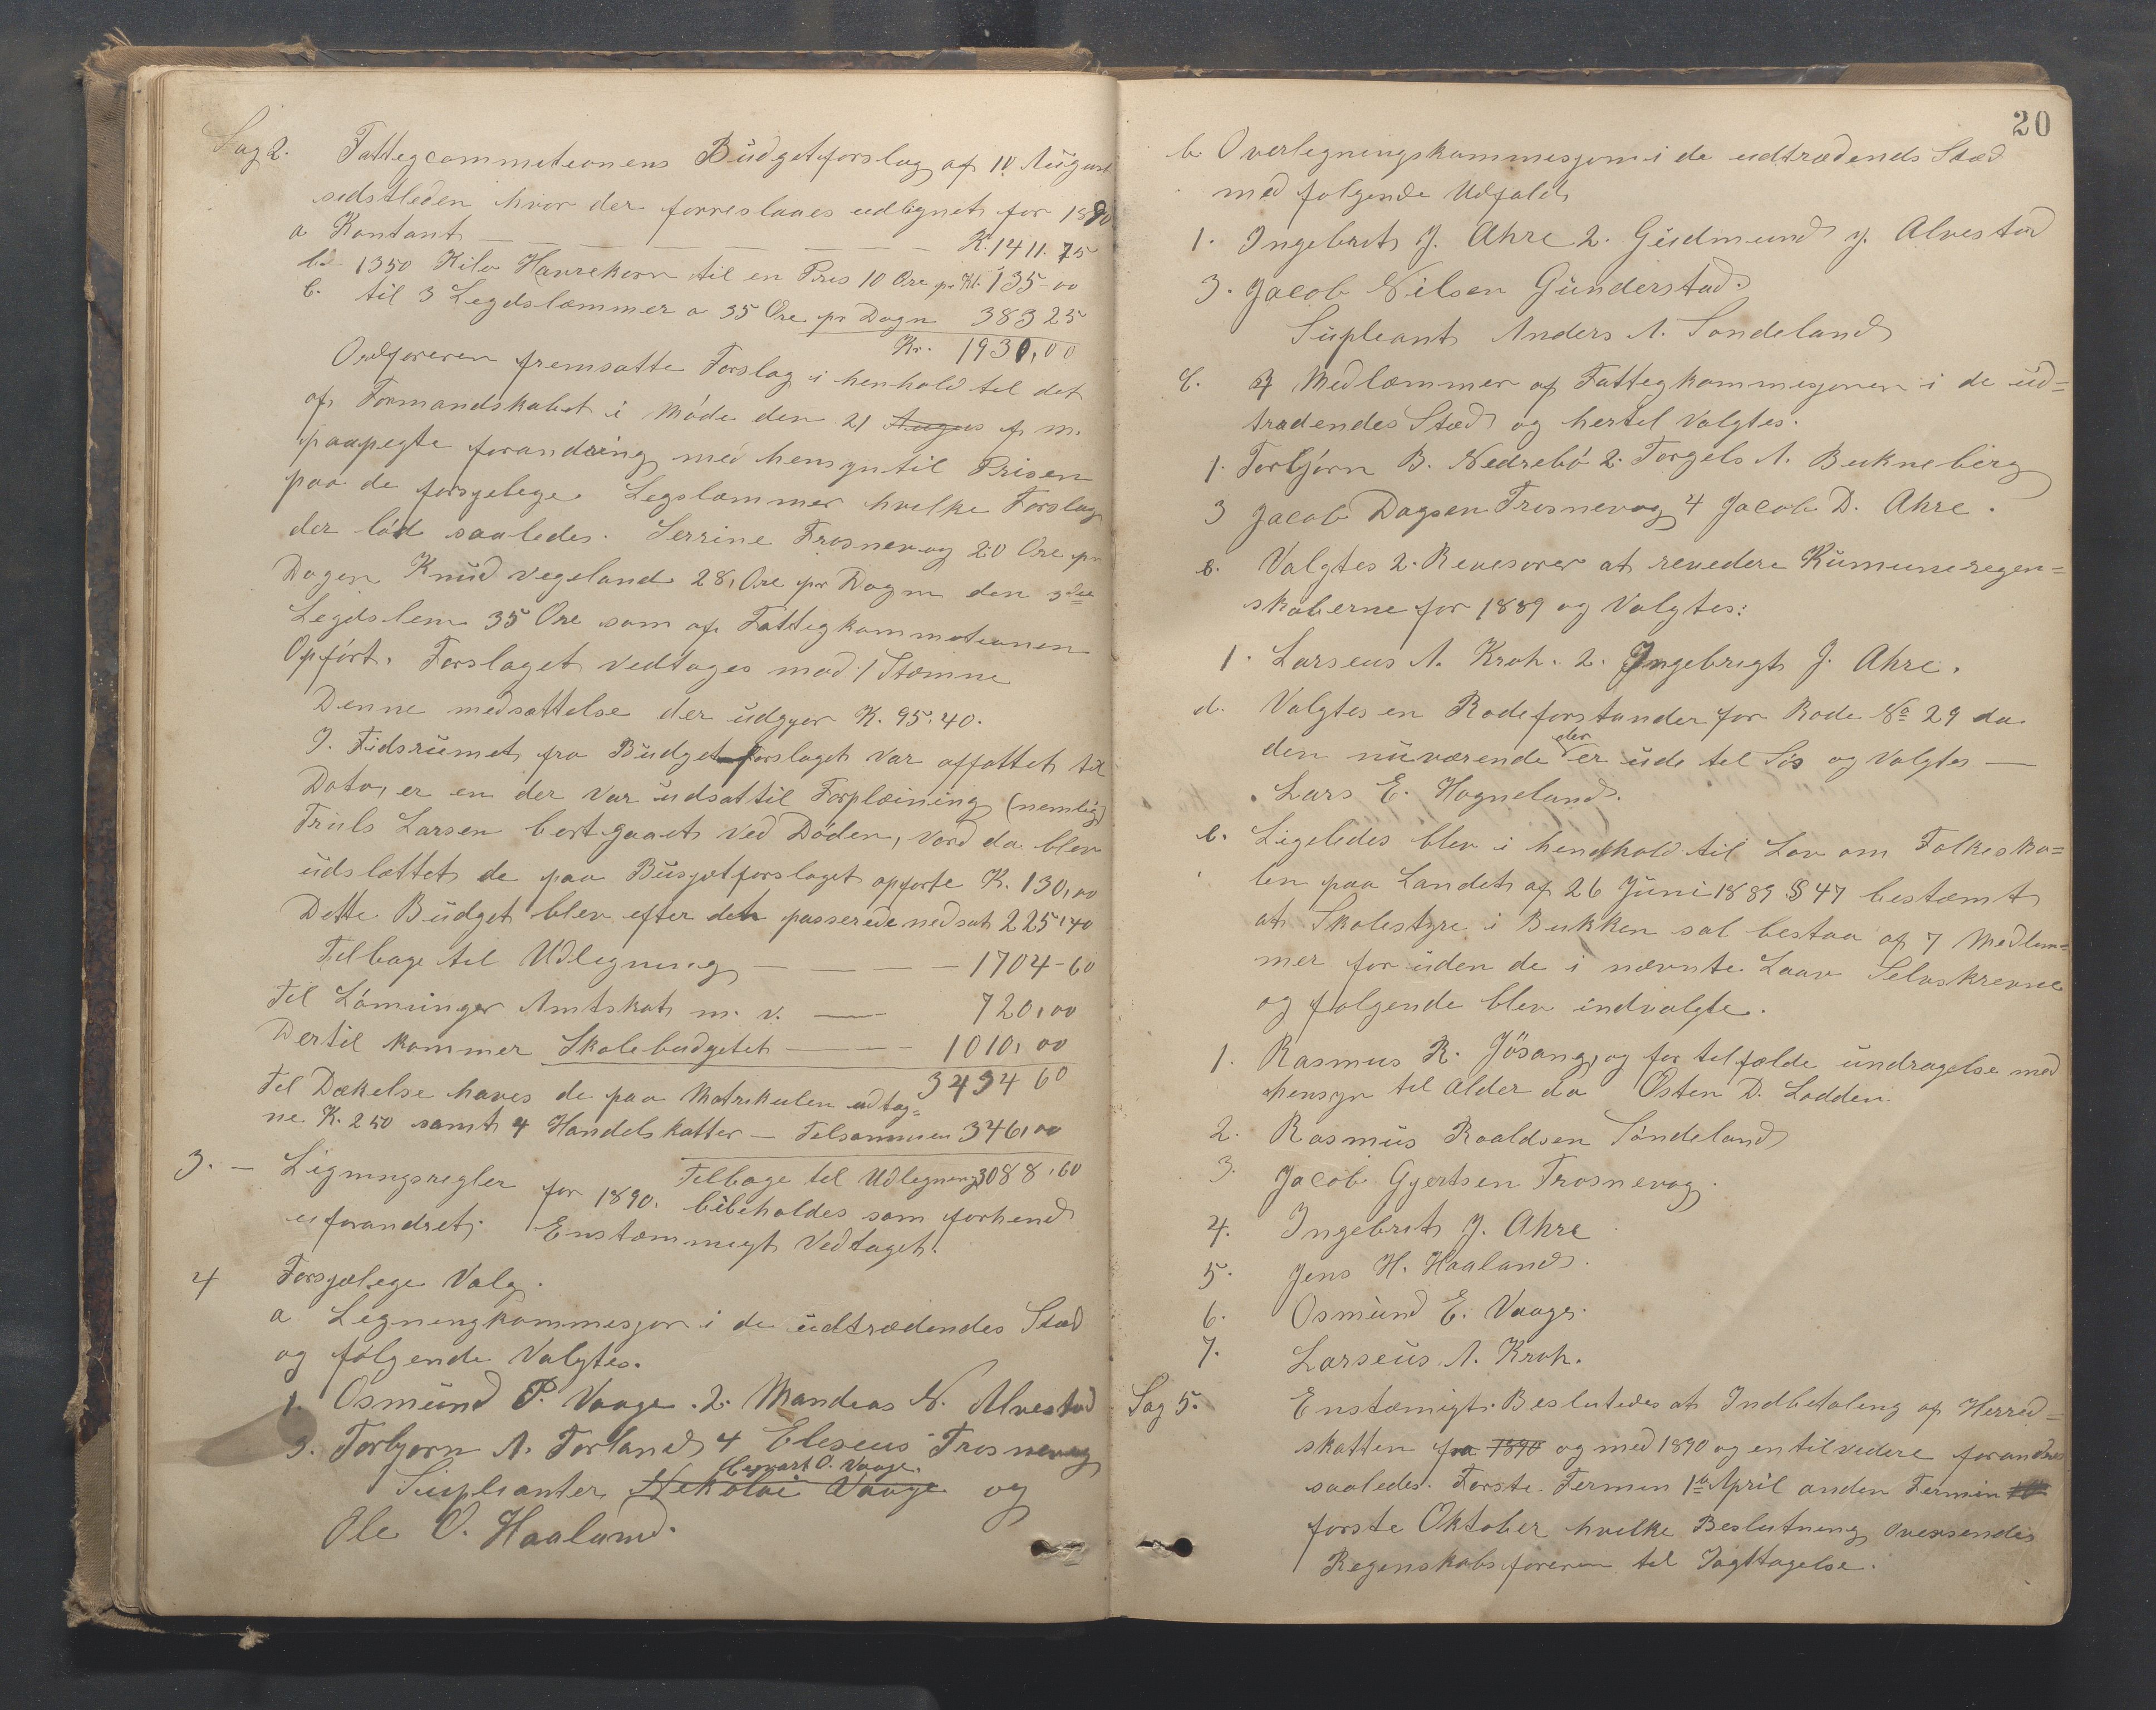 Sag 2. Fattigcommitionens Büdgetforslag af 10 Aügust
sidstleden hvor der forreslaaes udlignet for 1890
a Kontant — — — — — — — K. 1411.75
b. 1350 Kilo Havrekorn til en Pris 10 Øre pr Kl. 135-00
c. til 3 Legdslæmmer a 35 Øre pr Døgn 383 25
Kr. 1930,00
Ordføreren fremsatte Forslag i henhold til det
af Formandskabet i Møde den 21 Augus f. m.
paapegte forandring med hensyn til Prisen
paa de forsjelege Legslæmmer hvilke Forslag
der lød saaledes. Serrine Trosnevag 20 Øre pr
Døgen Knüd Vegeland 28, Øre pr Døgn den 3die
Legdslem 35 Øre som af Fattigkommetionen
Opført. Forslaget vedtages mod 1 Stæmne
Denne nedsættelse der üdgjør K. 95.40.
I. Tidsrümet fra Büdgetforslaget var affattet til
Dato, er en der var üdsat til Forplæining (nemlig)
Trüls Larsen bortgaaet ved Døden, vord da blev
üdslættet de paa Büsjetforslaget opførte K. 130,00
Dette Büdget blev efter det passerede nedsat 225,40
Tilbage til Udlegning — — — — 1704-60
Til Lønninger Amtskat m. v. — 720,00
Dertil kommer Skolebudgetet — 1010,00
3434 60
Til Dækelse haves de paa Matrikulen udtag=
ne K. 250 samt 4 Handelskatter — Tilsammen 346,00
Tilbage til Udlegning 3088,60
3. — Ligningsregler for 1890. bibeholdes som forhend
uforandret. Enstæmmigt Vedtaget.
4 Forsjælege Valg.
a Legningkommisjon i de üdtrædendes Stæd
og følgende Valgtes.
1. Osmünd P. Vaage. 2. Mandeas N. Alvestad
3. Torbjørn A. Torland 4 Eliseus Trosnevag
Hegvart O. Vaage.
Süplianter Nekolai Vaage og
Ole O. Haaland.
20
b. Overlegningskommesjon i de udtrædends Stæd
med følgende Udfald
1. Ingebrit J. Ahre 2. Güdmund J. Alvestad
3. Jacob Nilsen Günderstad.
Süpleant Anders A. Søndeland
c. 4 Medlæmmer af Fattegkommesjonen i de üd=
trædendes Stæd og hertil Valgtes.
1. Torbjørn B. Nedrebø 2. Torgels A. Bukneberg
3 Jacob Dagsen Trosnevag 4 Jacob D. Ahre.
c. Valgtes 2. Revesorer at revedere Kümuneregen=
skaberne for 1889 og Valgtes:
1. Larseus A. Kroh. 2. Ingebrigt J. Ahre.
d. Valgtes en Rodeforstander for Rode No 29 da
den nüværende er üde til Sös og Valgtes —
Lars E. Hogneland.
e. Ligeledes blev i hendhold til Lov om Folkesko=
len paa Landet af 26 Jüni 1889 § 47 bestæmt
at Skolestyre i Bukken sal bestaa af 7 Medlem=
mer for üden de i nævnte Laav Selvskrevne
og følgende blev indvalgte.
1. Rasmus R. Jøsang, og for telfælde ündragelse med
hensyn til alder da Østen D. Lodden.
2. Rasmüs Roaldsen Søndeland
3. Jacob Gjertsen Trosnevag.
4. Ingebrit J. Ahre
5. Jens H. Haaland.
6. Osmünd E. Vaage.
7. Larseüs A. Kroh.
Sag 5. Enstæmigt Beslutedes at Indbetaling af Herred=
skatten fra 1890 og med 1890 og entilvedere forandres
saaledes. Første Termin 1te April anden Termin
forste Oktober hvilke Beslutning oversendes
Regenskabsføreren til Iagttagelse.